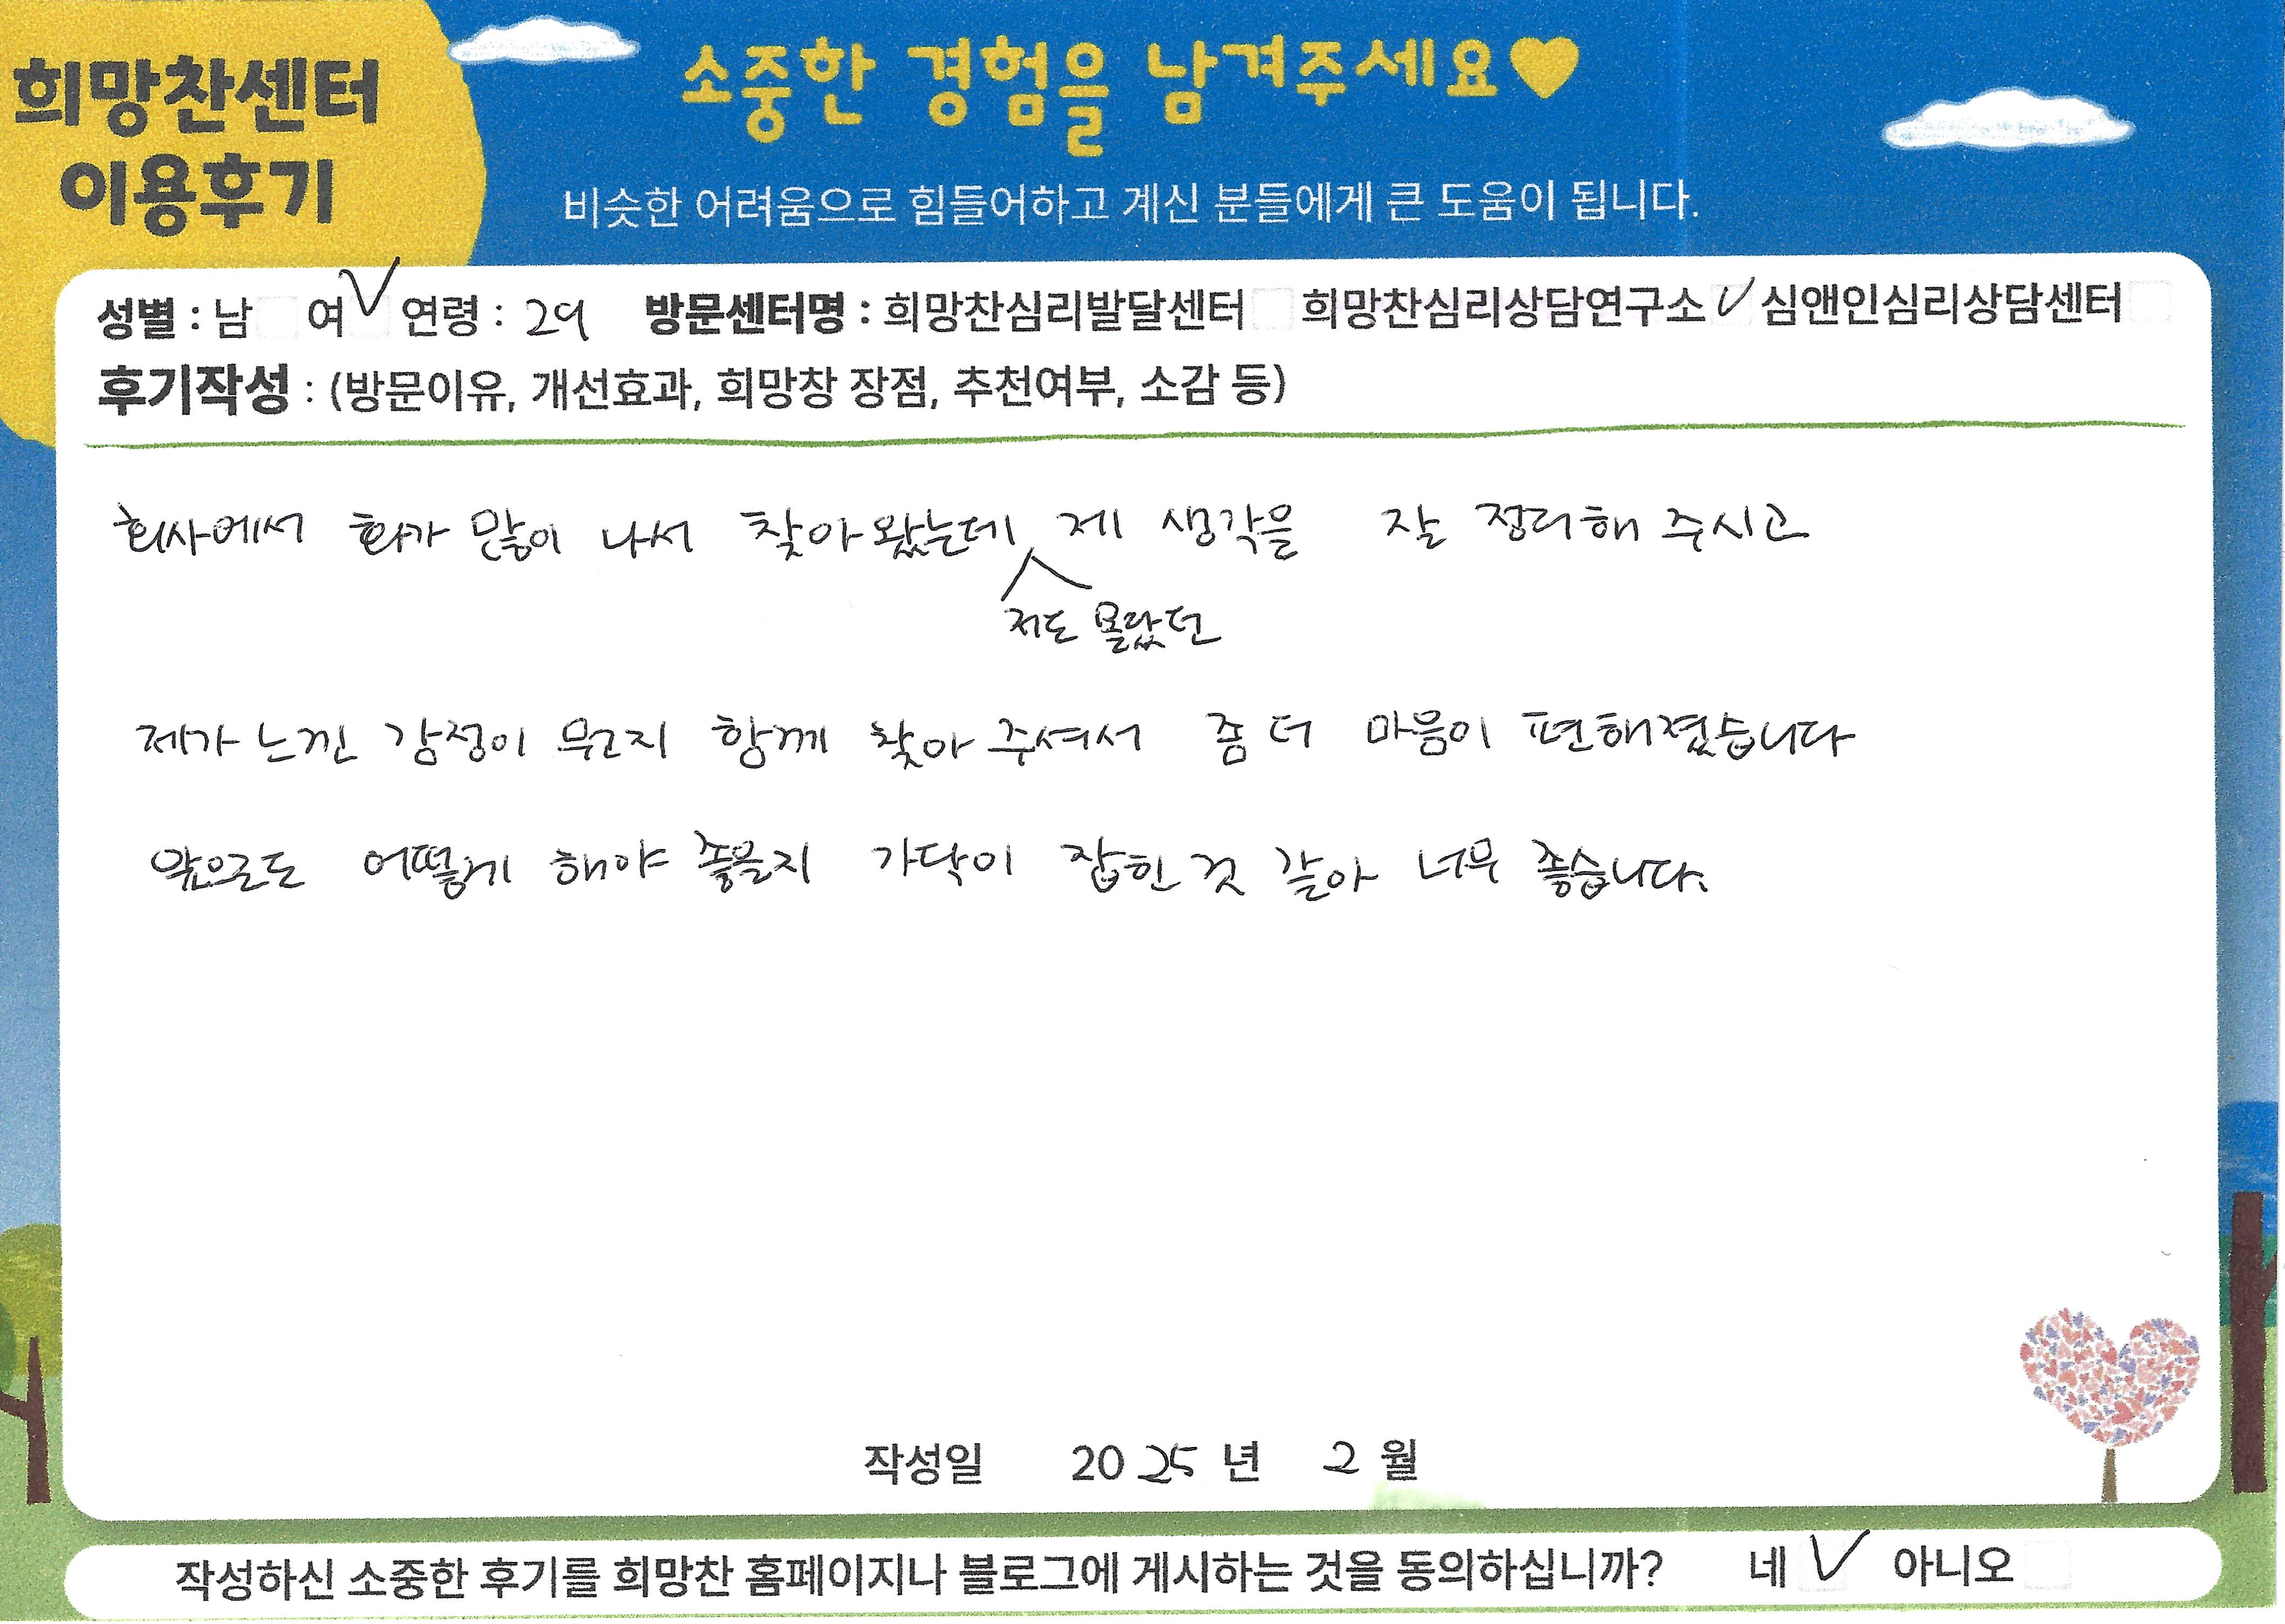 희망찬센터
이용후기
소중한 경험을 남겨주세요♥
비슷한 어려움으로 힘들어하고 계신 분들에게 큰 도움이 됩니다.
성별 : 남 여 ✓ 연령 : 29 방문센터명 : 희망찬심리발달센터 희망찬심리상담연구소 ✓ 심앤인심리상담센터
후기작성 : (방문이유, 개선효과, 희망창 장점, 추천여부, 소감 등)
회사에서 화가 많이 나서 찾아왔는데 제 생각을 잘 정리해 주시고
저도 몰랐던
제가 느낀 감정이 뭔지 함께 찾아 주셔서 좀 더 마음이 편해졌습니다
앞으로도 어떻게 해야 좋을지 가닥이 잡힌 것 같아 너무 좋습니다.
작성일 2025 년 2 월
작성하신 소중한 후기를 희망찬 홈페이지나 블로그에 게시하는 것을 동의하십니까? 네 ✓ 아니오